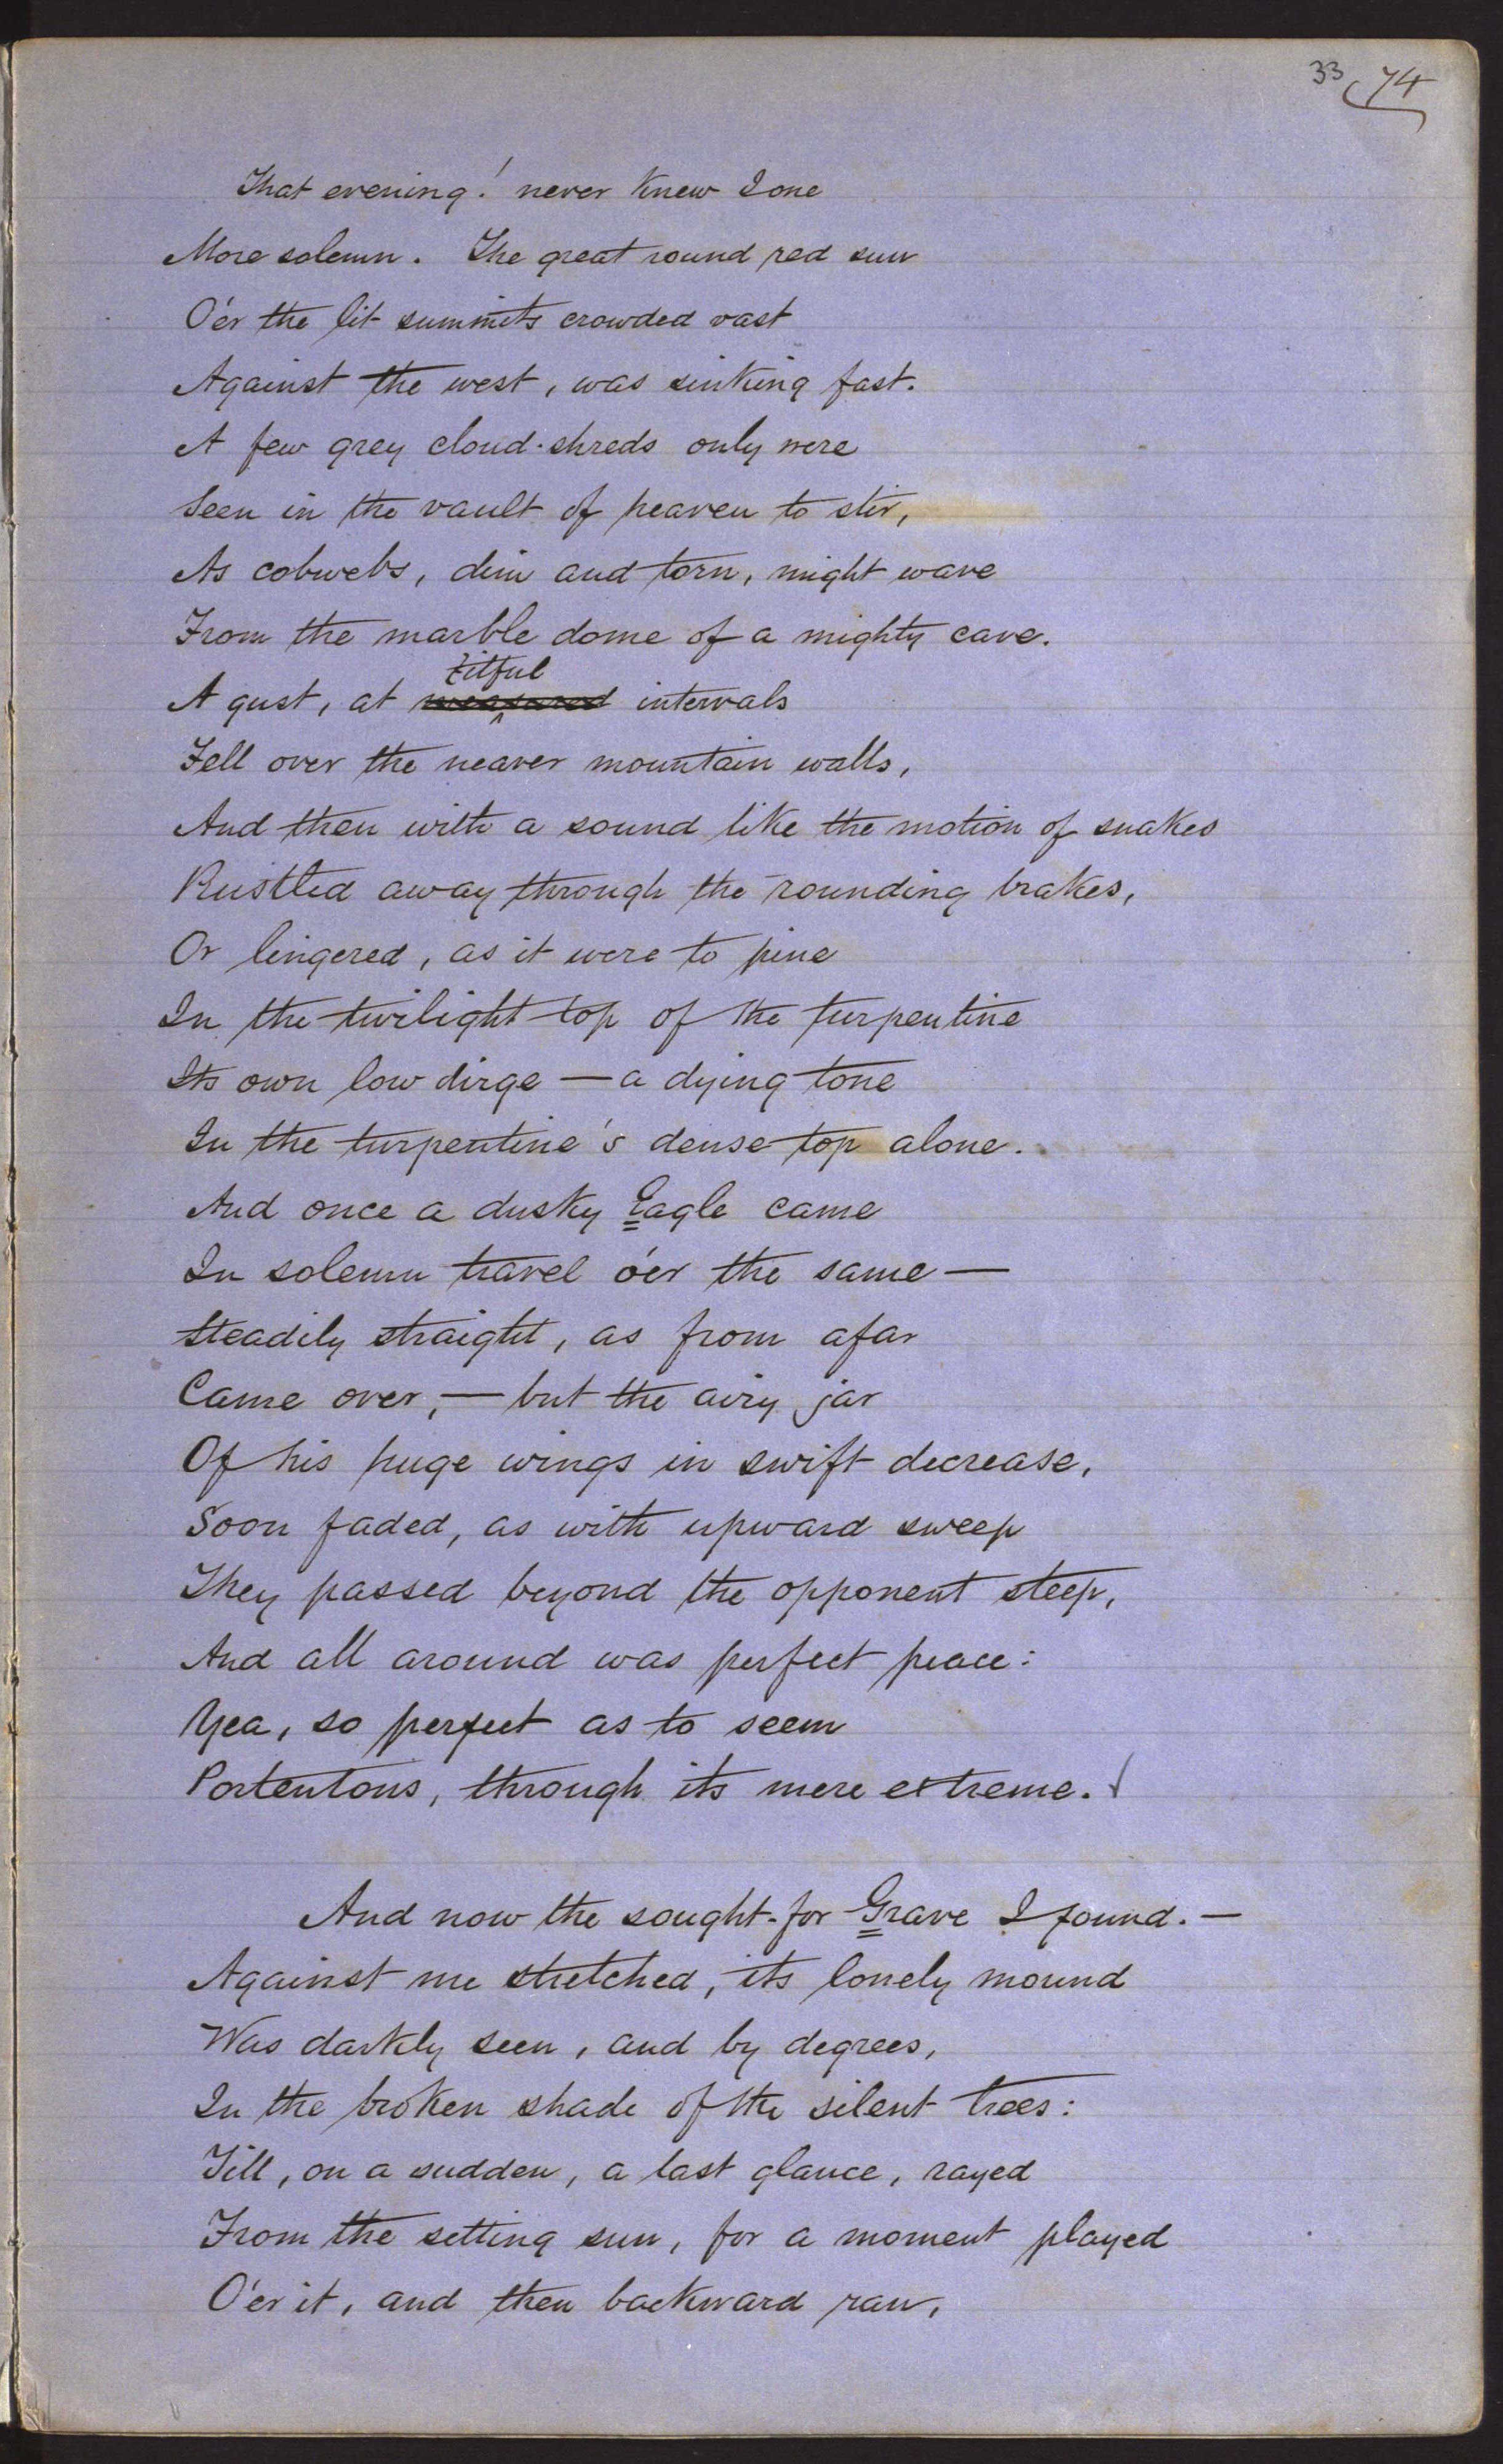 33 74
That evening! never knew I one
More solemn. The great round red sun
O'er the lit summits crowded vast
Against the west, was sinking fast.
A few grey cloud-shreds only were
Seen in the vault of heaven to stir,
As cobwebs, dim and torn, might wave
From the marble dome of a mighty cave.
fitful
A gust, at measured intervals
Fell over the nearer mountain walls,
And then with a sound like the motion of snakes
Rustled away through the rounding brakes,
Or lingered, as it were to pine
In the twilight top of the turpentine
Its own low dirge — a dying tone
In the turpentine's dense top alone.
And once a dusky Eagle came
In solemn travel o'er the same —
Steadily straight, as from afar
Came over, — but the airy jar
Of his huge wings in swift decrease,
Soon faded, as with upward sweep
They passed beyond the opponent steep,
And all around was perfect peace:
Yea, so perfect as to seem
Portentous, through its mere extreme.
And now the sought-for Grave I found. —
Against me stretched, its lonely mound
Was darkly seen, and by degrees,
In the broken shade of the silent trees:
Till, on a sudden, a last glance, rayed
From the setting sun, for a moment played
O'er it, and then backward ran,